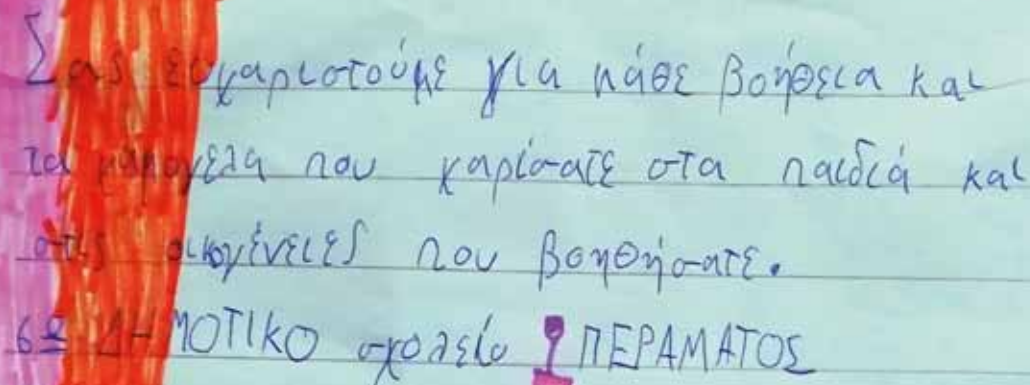 Σας ευχαριστούμε για κάθε βοήθεια και
τα χαμόγελα που χαρίσατε στα παιδιά και
στις οικογένειες που βοηθήσατε.
6ο ΔΗΜΟΤΙΚΟ σχολείο ΠΕΡΑΜΑΤΟΣ